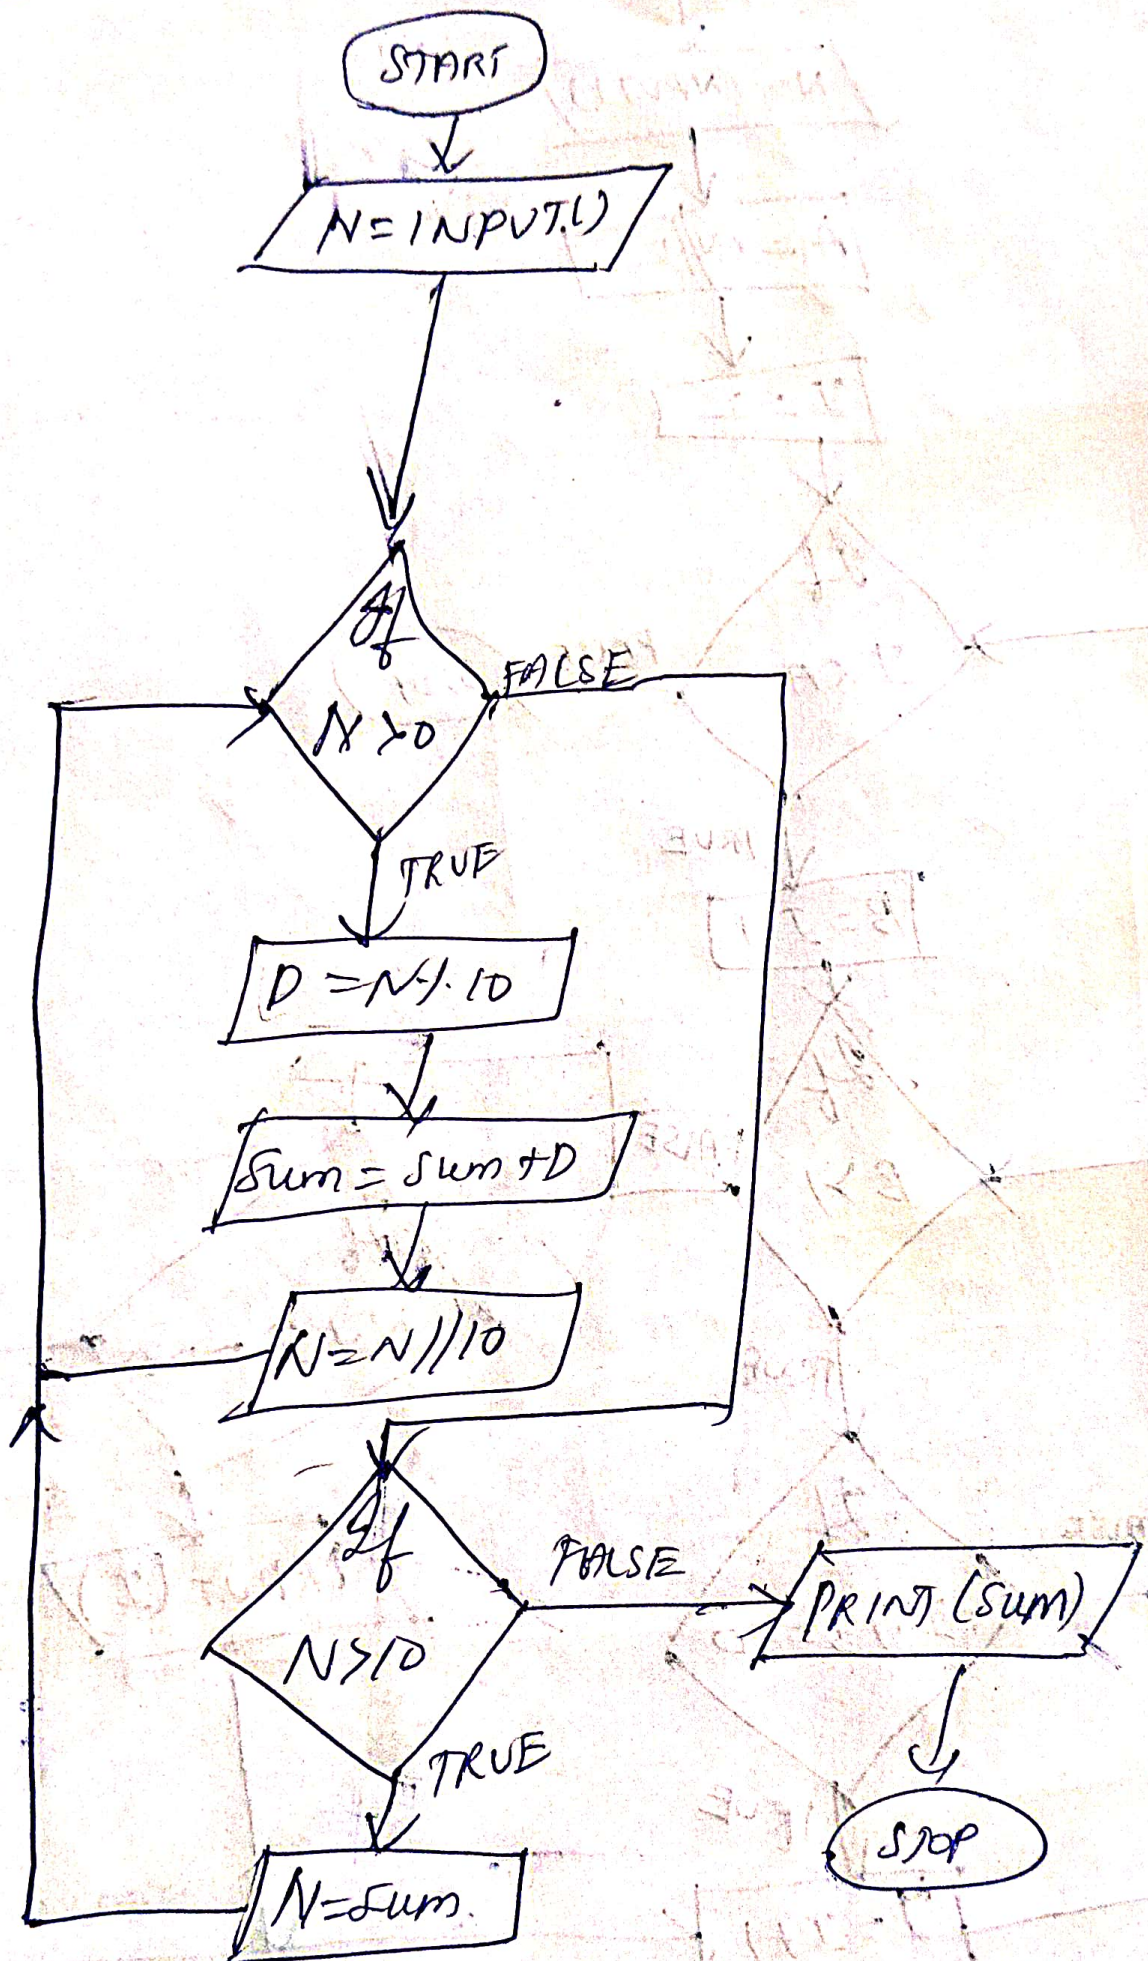 START
N=INPUT()
If
N>0
FALSE
TRUE
D=N%10
Sum=Sum+D
N=N//10
If
N>10
FALSE
PRINT(SUM)
TRUE
STOP
N=Sum.